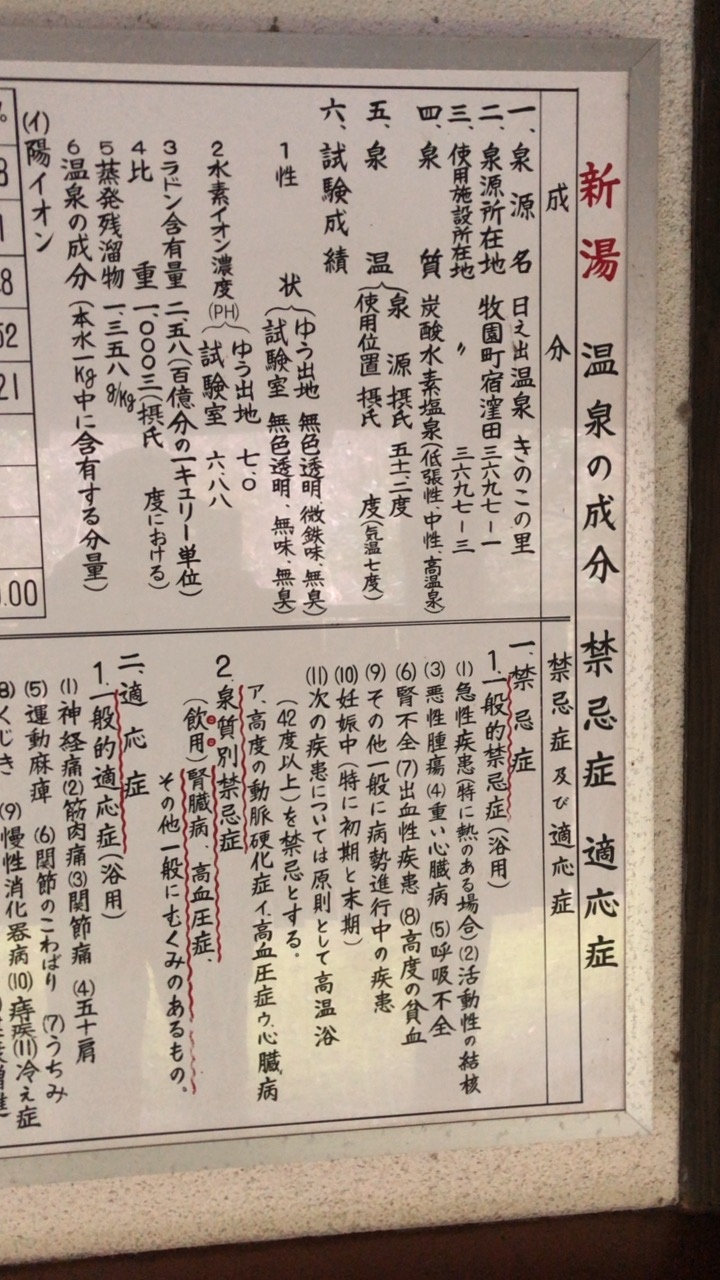 新湯 温泉の成分 禁忌症 適応症
成分
一、泉源名 日之出温泉 きのこの里
二、泉源所在地 牧園町宿窪田三六九七ー一
三、使用施設所在地 〃 三六九七ー三
四、泉質 炭酸水素塩泉(低張性、中性、高温泉)
五、泉温 泉源 摂氏 五十二、二度
使用位置 摂氏 度(気温七度)
六、試験成績
1 性状 ゆう出地 無色透明、微鉄味、無臭)
(試験室 無色透明、無味、無臭)
2 水素イオン濃度(PH) ゆう出地 七.〇
試験室 六.八八
3 ラドン含有量 二.五八(百億分の一キュリー単位)
4 比重 一.〇〇〇三(摂氏 度における)
5 蒸発残溜物 一.三五八g/kg
6 温泉の成分(本水一Kg中に含有する分量)
(イ)陽イオン
%
8
1
.8
52
21
.00
禁忌症及び適応症
一.禁忌症
1.一般的禁忌症(浴用)
(1)急性疾患(特に熱のある場合)(2)活動性の結核
(3)悪性腫瘍(4)重い心臓病(5)呼吸不全
(6)腎不全(7)出血性疾患(8)高度の貧血
(9)その他一般に病勢進行中の疾患
(10)妊娠中(特に初期と末期)
(11)次の疾患については原則として高温浴
(42度以上)を禁忌とする。
ア.高度の動脈硬化症イ.高血圧症ウ.心臓病
2.泉質別禁忌症
(飲用)腎臓病、高血圧症、
その他一般にむくみのあるもの。
二.適応症
1.一般的適応症(浴用)
(1)神経痛(2)筋肉痛(3)関節痛(4)五十肩
(5)運動麻痺(6)関節のこわばり(7)うちみ
(8)くじき(9)慢性消化器病(10)痔疾(11)冷え症